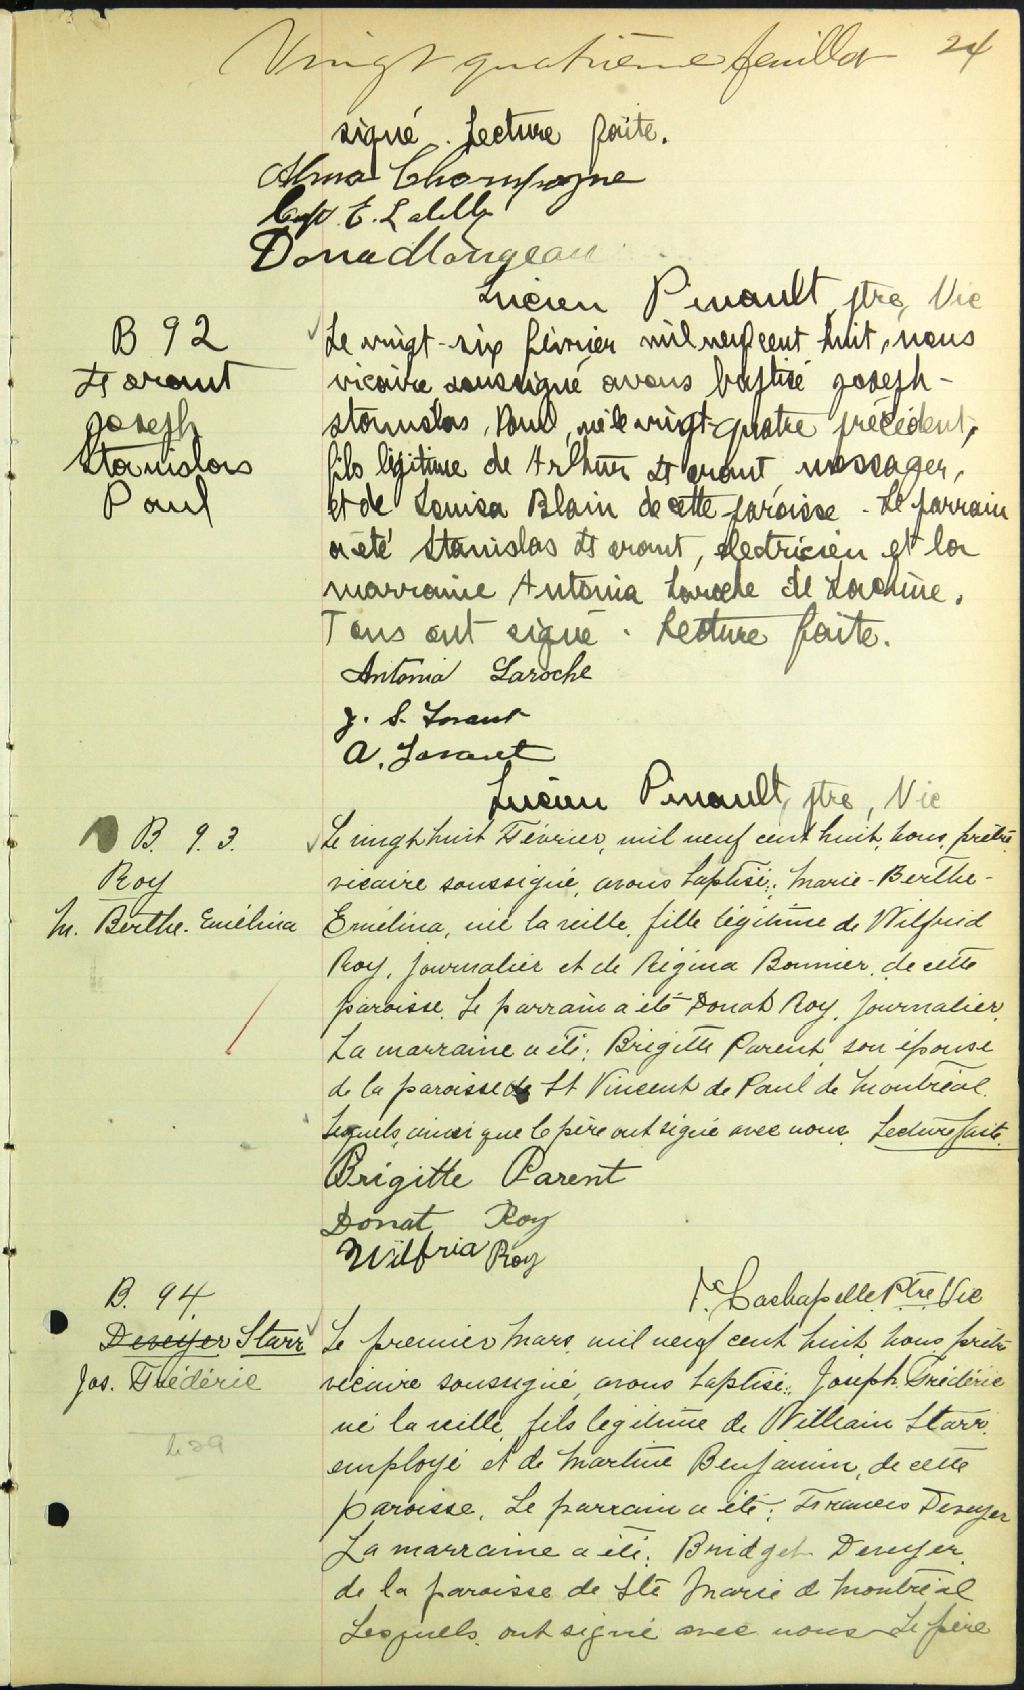 Vingt quatrième feuillet 24
signé. Lecture faite.
Alma Champagne
Dona Mongeau
Lucien Pinault, ptre, Vic
B 92
Joseph
Stanislas
Paul
Le vingt-six février mil neuf cent huit, nous
vicaire soussigné avons baptisé Joseph-
Stanislas, Paul, né le vingt-quatre précédent,
fils légitime de Arthur messager,
et de Louisa Blain de cette paroisse - Le parrain
a été Stanislas électricien et la
marraine Antonia Laroche de Lachine.
Tous ont signé. Lecture faite.
Antonia Laroche
J. S.
A.
Lucien Pinault, ptre, Vic
B. 93.
Roy
M. Berthe. Emélina
Le vingt huit Février, mil neuf cent huit, nous, prêtre
vicaire soussigné, avons baptisé: Marie-Berthe-
Emélina, née la veille, fille légitime de Wilfrid
Roy, journalier et de Régina Bonnier, de cette
paroisse. Le parrain a été Donat Roy, journalier.
La marraine a été: Brigitte Parent, son épouse
de la paroisse de St Vincent de Paul de Montréal.
Lesquels, ainsi que le père ont signé avec nous. Lecture faite.
Brigitte Parent
Donat Roy
Wilfrid Roy
Lachapelle Ptre Vic
B. 94
Starr
Jos. Frédéric
Le premier Mars, mil neuf cent huit, nous, prêtre
vicaire soussigné, avons baptisé: Joseph Frédéric
né la veille, fils légitime de William Starr
employé et de Martine Benjamin, de cette
paroisse. Le parrain a été: Francis
La marraine a été: Bridget
de la paroisse de Ste Marie de Montréal
Lesquels ont signé avec nous. Le père